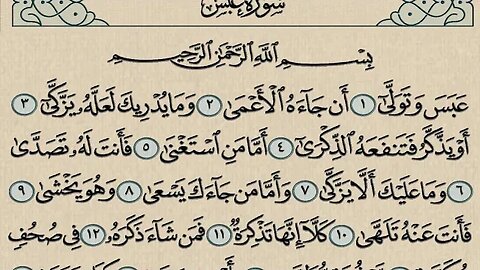 سورة عبس
بِسْمِ اللَّهِ الرَّحْمَٰنِ الرَّحِيمِ
عَبَسَ وَتَوَلَّىٰٓ ١ أَن جَآءَهُ ٱلْأَعْمَىٰ ٢ وَمَا يُدْرِيكَ لَعَلَّهُۥ يَزَّكَّىٰٓ ٣
أَوْ يَذَّكَّرُ فَتَنفَعَهُ ٱلذِّكْرَىٰٓ ٤ أَمَّا مَنِ ٱسْتَغْنَىٰ ٥ فَأَنتَ لَهُۥ تَصَدَّىٰ
٦ وَمَا عَلَيْكَ أَلَّا يَزَّكَّىٰ ٧ وَأَمَّا مَن جَآءَكَ يَسْعَىٰ ٨ وَهُوَ يَخْشَىٰ ٩
فَأَنتَ عَنْهُ تَلَهَّىٰ ١٠ كَلَّآ إِنَّهَا تَذْكِرَةٌ ١١ فَمَن شَآءَ ذَكَرَهُۥ ١٢ فِى صُحُفٍ